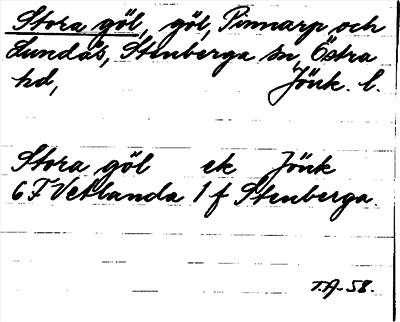 Stora göl, göl, Pinnarp och
Lundås, Stenberga sn, Östra
hd, Jönk. l.
Stora göl ek Jönk
6 F Vetlanda 1 f Stenberga.
T.A-58.